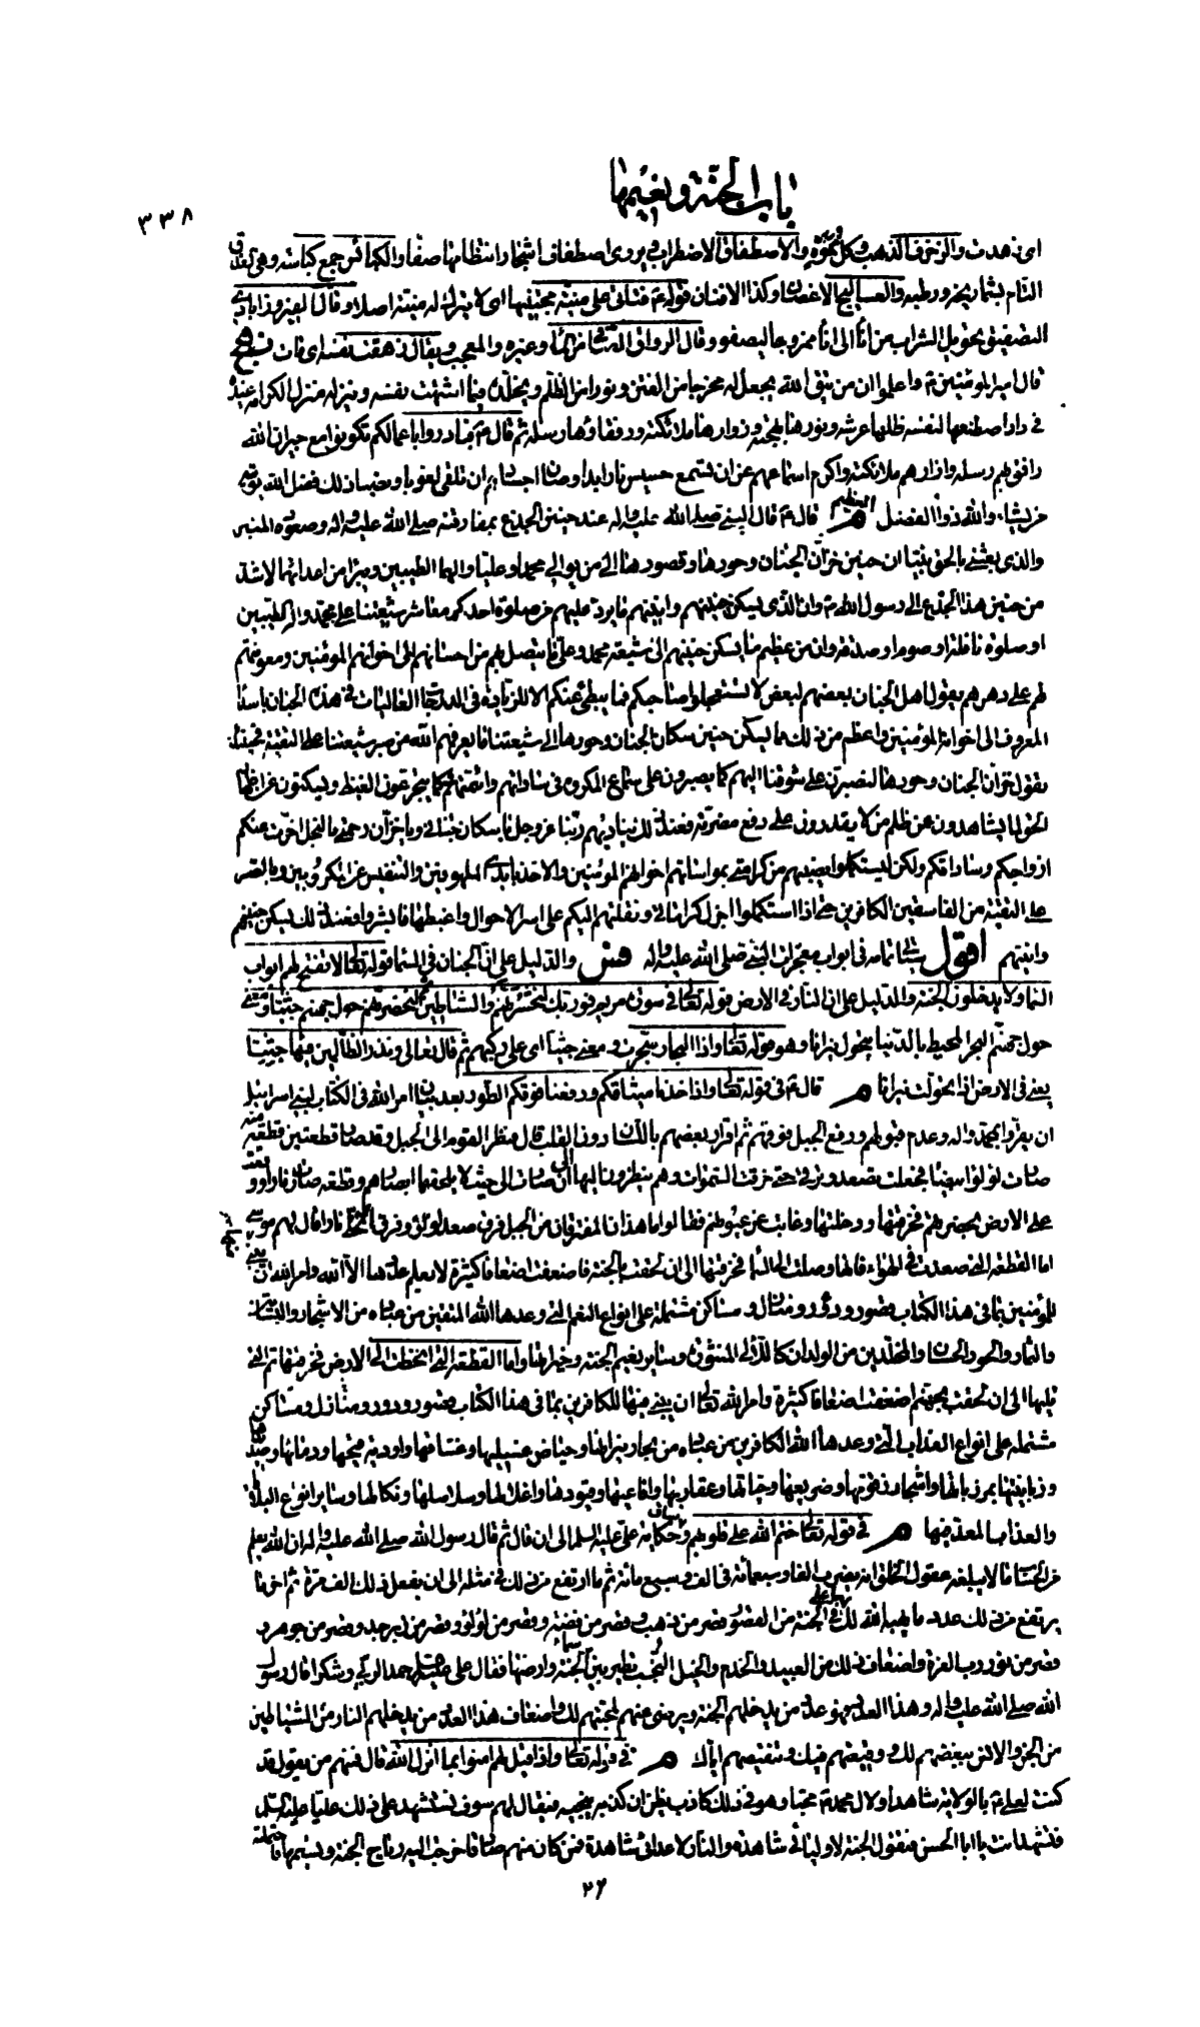 باب الجنة ونعيمها
٣٣٨
اى زهدت والزخرف الذهب وكل مموه والاصطفاق الاضطراب ويروى اصطفاف اشجار وانتظامها صفا والكبائس جمع كباسة وهى العذق
التام بشماريخه ورطبه والعساليج الاغصان وكذا الافنان قوله ع فتأتى على منية مجتنيها اى لا يترك له منية اصلا وقال الفيروزابادى
التصفيق تحويل الشراب من اناء الى اناء ممزوجا ليصفو وقال الرواق الصافى من الماء وغيره والمعجب ويقال زهقت نفسه اى مات نهج
قال امير المؤمنين ع واعلموا ان من يتق الله يجعل له مخرجا من الفتن ونورا من الظلم ويخلده فيما اشتهت نفسه وينزله منزل الكرامة عنده
فى دار اصطنعها لنفسه ظلها عرشه ونورها بهجته وزوارها ملائكته ورفقاؤها رسله ثم قال ع فبادروا باعمالكم تكونوا مع جيران الله
رافق بهم رسله وازارهم ملائكته واكرم اسماعهم عن ان تسمع حسيس نار ابدا وصان اجسادهم ان تلقى لغوبا ونصبا ذلك فضل الله يؤتيه
من يشاء والله ذو الفضل العظيم م قال ع قال النبى صلى الله عليه واله عند حنين الجذع بمفارقته صلى الله عليه واله وصعوده المنبر
والذى بعثنى بالحق نبيا ان حنين خزان الجنان وحورها وقصورها الى من يوالى محمدا وعليا والهما الطيبين ويبرأ من اعدائهما لاشد
من حنين هذا الجذع الى رسول الله ص وان الذى يسكن حنينهم وانينهم ما يرد عليهم من صلوة احدكم معاشر شيعتنا على محمد واله الطيبين
او صلوة نافلة او صوم او صدقة وان من عظيم ما يسكن حنينهم الى شيعة محمد وعلى ما يتصل بهم من احسانهم الى اخوانهم المؤمنين ومعونتهم
لهم على دهرهم يقول اهل الجنان بعضهم لبعض لا تستعجلوا صاحبكم فما يبطئ عنكم الا للزيادة فى الدرجات العاليات فى هذه الجنان باسداء
المعروف الى اخوانه المؤمنين واعظم من ذلك مما يسكن حنين سكان الجنان وحورها الى شيعتنا ما يعرفهم الله من صبر شيعتنا على التقية فحينئذ
يقول خزان الجنان وحورها لنصبرن على شوقنا اليهم كما يصبرون على سماع المكروه فى ساداتهم وائمتهم وكما يتجرعون الغيظ ويسكتون عن اظهار
الحق لما يشاهدون من ظلم من لا يقدرون على دفع مضرته فعند ذلك يناديهم ربنا عز وجل يا سكان جنانى ويا خزان رحمتى ما لبخل اخرت عنكم
ازواجكم وساداتكم ولكن ليستكملوا نصيبهم من كرامتى بمواساتهم اخوانهم المؤمنين والاخذ بايدى الملهوفين والتنفيس عن المكروبين وبالصبر
على التقية من الفاسقين الكافرين حتى اذا استكملوا اجزل كراماتى نقلتهم اليكم على اسر الاحوال واغبطها فابشروا فعند ذلك يسكن حنينهم
وانينهم اقول سيأتى تمامه فى ابواب معجزات النبى صلى الله عليه واله فس والدليل على ان الجنان فى السماء قوله تعالى لا تفتح لهم ابواب
السماء ولا يدخلون الجنة والدليل على ان النار فى الارض قوله تعالى فى سورة مريم فوربك لنحشرنهم والشياطين ثم لنحضرنهم حول جهنم جثيا ومعنى
حول جهنم البحر المحيط بالدنيا يتحول نيرانا وهو قوله تعالى واذا البحار سجرت ومعنى جثيا اى على ركبهم ثم قال تعالى ونذر الظالمين فيها جثيا
يعنى فى الارض اذا تحولت نيرانا م قال ع فى قوله تعالى واذ اخذنا ميثاقكم ورفعنا فوقكم الطور بعد بيان امر الله فى الكتاب لبنى اسرائيل
ان يقروا بمحمد واله وعدم قبولهم ورفع الجبل فوقهم ثم اقرار بعضهم باللسان دون القلب قال فنظر القوم الى الجبل وقد صار قطعتين قطعة منه
صارت لؤلؤة بيضاء فجعلت تصعد وترقى حتى خرقت السموات وهم ينظرون اليها الى ان صارت الى حيث لا يلحقها ابصارهم وقطعة صارت نارا ووقعت
على الارض بحضرتهم فخرقتها ودخلتها وغابت عن عيونهم فقالوا ما هذان المفترقان من الجبل فرق صعد لؤلؤا وفرق انحط نارا قال لهم موسى
اما القطعة التى صعدت فى الهواء فانها وصلت الى السماء فخرقتها الى ان لحقت بالجنة فاضعفت اضعافا كثيرة لا يعلم عددها الا الله وامر الله ان يبنى
للمؤمنين بما فى هذا الكتاب قصور ودور ومنازل ومساكن مشتملة على انواع النعم التى وعدها الله المتقين من عباده من الاشجار والبساتين
والثمار والحور الحسان والمخلدين من الولدان كاللآلى المنثورة وساير نعيم الجنة وخيراتها واما القطعة التى انحطت الى الارض فخرقتها ثم التى
تليها الى ان لحقت بجهنم فاضعفت اضعافا كثيرة وامر الله تعالى ان يبنى منها للكافرين بما فى هذا الكتاب قصور ودور ومنازل ومساكن
مشتملة على انواع العذاب التى وعدها الله الكافرين من عباده من بحار نيرانها وحياض غسلينها وغساقها واودية قيحها ودمائها وصديدها
وزبانيتها بمرزباتها واشجار زقومها وضريعها وحياتها وعقاربها وافاعيها وقيودها واغلالها وسلاسلها وانكالها وساير انواع البلايا
والعذاب المعد فيها م فى قوله تعالى ختم الله على قلوبهم وساق حكاية على عليه السلم الى ان قال ثم قال رسول الله صلى الله عليه واله ان الله يعلم
من الحساب ما لا يبلغه عقول الخلق انه يضرب الفا وسبعمائة فى الف وسبعمائة ثم ما ارتفع من ذلك فى مثله الى ان يفعل ذلك الف مرة ثم اخر ما
يرتفع من ذلك عدد ما يهبه الله لك يا على فى الجنة من القصور قصر من ذهب وقصر من فضة وقصر من لؤلؤ وقصر من زبرجد وقصر من جوهر و
قصر من نور رب العزة واضعاف ذلك من العبيد والخدم والخيل والنجب تطير بين سماء الجنة وارضها فقال على ع حمدا لربى وشكرا قال رسول
الله صلى الله عليه واله وهذا العدد فهو عدد من يدخلهم الجنة ويرضى عنهم لمحبتهم لك واضعاف هذا العدد من يدخلهم النار من الشياطين
من الجن والانس ببغضهم لك ووقيعتهم فيك وتنقيصهم اياك م فى قوله تعالى واذا قيل لهم امنوا بما انزل الله قال فمنهم من يقول قد
كنت لعلى ع بالولاية شاهدا ولال محمد ص محبا وهو فى ذلك كاذب يظن ان كذبه ينجيه فيقال لهم سوف نستشهد على ذلك عليا عليه السلم
فتشهد انت يا ابا الحسن فتقول الجنة لاوليائى شاهدة والنار لاعدائى شاهدة فمن كان منهم صادقا خرجت اليه رياح الجنة ونسيمها فاحتملته
٢۶